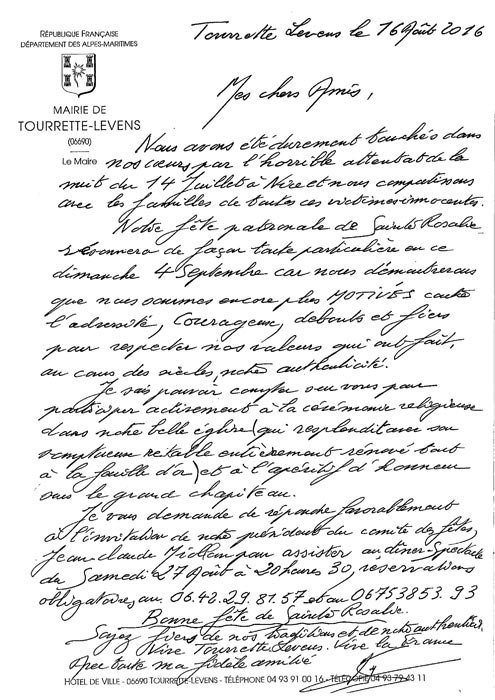 RÉPUBLIQUE FRANÇAISE
DÉPARTEMENT DES ALPES-MARITIMES
MAIRIE DE
TOURRETTE-LEVENS
(06690)
Le Maire
Tourrette Levens le 16 Août 2016
Mes chers Amis,
Nous avons été durement touchés dans
nos cœurs par l'horrible attentat de la
nuit du 14 Juillet à Nice et nous compatissons
avec les familles de toutes ces victimes innocentes.
Notre fête patronale de Sainte Rosalie
résonnera de façon toute particulière en ce
dimanche 4 Septembre car nous démontrerons
que nous sommes encore plus MOTIVÉS contre
l'adversité, Courageux, debouts et fiers
pour respecter nos valeurs qui ont fait,
au cours des siècles, notre authenticité.
Je sais pouvoir compter sur vous pour
participer activement à la cérémonie religieuse
dans notre belle église (qui resplendit avec son
somptueux retable entièrement rénové tout
à la feuille d'or) et à l'apéritif d'Honneur
sous le grand chapiteau.
Je vous demande de répondre favorablement
à l'invitation de notre président du comité des fêtes,
Jean-Claude pour assister au dîner-Spectacle
du Samedi 27 Août à 20 heures 30, reservations
obligatoires au. 06.42.29.81.57 et au 06753853.93
Bonne fête de Sainte Rosalie.
Soyez fiers de nos traditions et de notre authenticité.
Vive Tourrette Levens. Vive la France
Avec toute ma fidèle amitié
HÔTEL DE VILLE - 06690 TOURRETTE-LEVENS - TÉLÉPHONE 04 93 91 00 16 - TÉLÉCOPIE 04 93 79 43 11